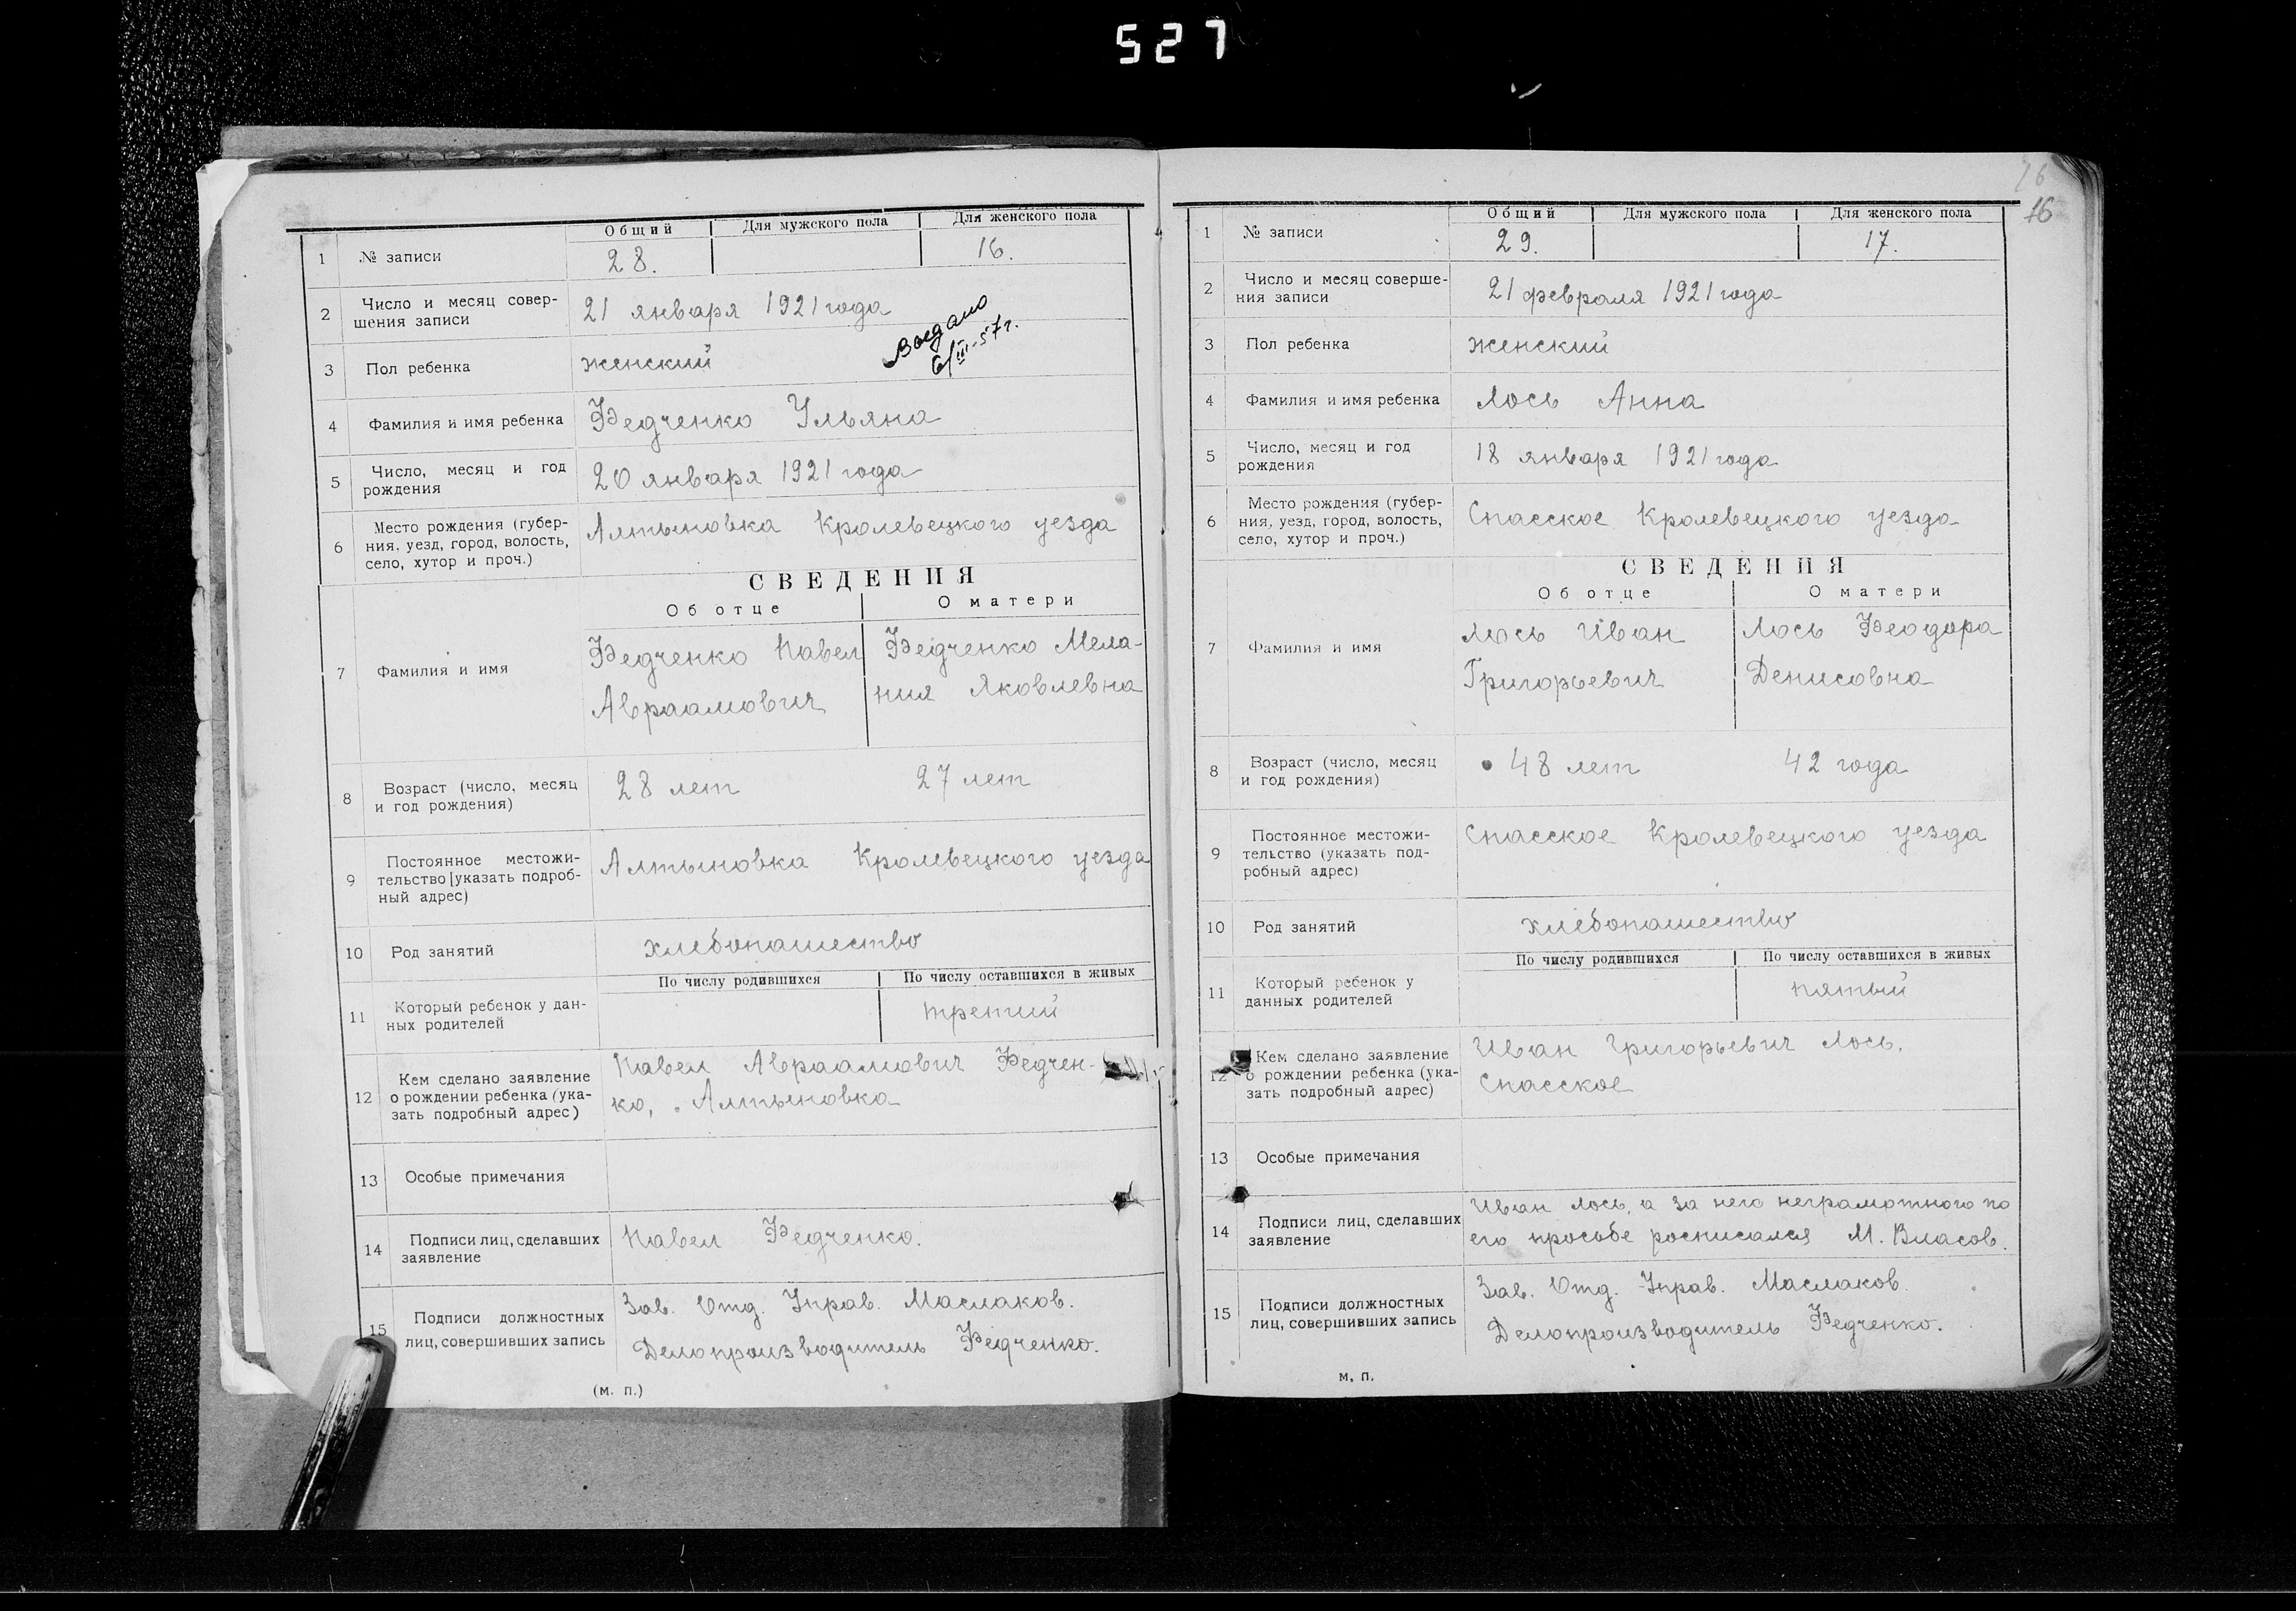 527
Общий Для мужского пола Для женского пола
1 № записи 28. 16.
2 Число и месяц совер-
шения записи 21 января 1921 года
Выдано
6/III-57г.
3 Пол ребенка женский
4 Фамилия и имя ребенка Федченко Ульяна
5 Число, месяц и год
рождения 20 января 1921 года
6 Место рождения (губер-
ния, уезд, город, волость,
село, хутор и проч.) Алтыновка Кролевецкого уезда
СВЕДЕНИЯ
Об отце О матери
7 Фамилия и имя Федченко Павел Федченко Мела-
Авраамович ния Яковлевна
8 Возраст (число, месяц
и год рождения) 28 лет 27 лет
9 Постоянное местожи-
тельство [указать подроб-
ный адрес) Алтыновка Кролевецкого уезда
10 Род занятий хлебопашество
По числу родившихся По числу оставшихся в живых
11 Который ребенок у дан-
ных родителей третий
12 Кем сделано заявление
о рождении ребенка (ука-
зать подробный адрес) Павел Авраамович Федчен-
ко, Алтыновка
13 Особые примечания
14 Подписи лиц, сделавших
заявление Павел Федченко.
15 Подписи должностных
лиц, совершивших запись Зав. Отд. Управ. Маслаков.
Делопроизводитель Федченко.
(м. п.)
16
16
Общий Для мужского пола Для женского пола
1 № записи 29. 17.
2 Число и месяц соверше-
ния записи 21 февраля 1921 года
3 Пол ребенка женский
4 Фамилия и имя ребенка Лось Анна
5 Число, месяц и год
рождения 18 января 1921 года
6 Место рождения (губер-
ния, уезд, город, волость,
село, хутор и проч.) Спасское Кролевецкого уезда
СВЕДЕНИЯ
Об отце О матери
7 Фамилия и имя Лось Иван Лось Феодора
Григорьевич Денисовна
8 Возраст (число, месяц
и год рождения) 48 лет 42 года
9 Постоянное местожи-
тельство (указать под-
робный адрес) Спасское Кролевецкого уезда
10 Род занятий хлебопашество
По числу родившихся По числу оставшихся в живых
11 Который ребенок у
данных родителей пятый
12 Кем сделано заявление
о рождении ребенка (ука-
зать подробный адрес) Иван Григорьевич Лось.
Спасское
13 Особые примечания
14 Подписи лиц, сделавших
заявление Иван Лось, а за него неграмотного по
его просьбе росписался М. Власов.
15 Подписи должностных
лиц, совершивших запись Зав. Отд. Управ. Маслаков.
Делопроизводитель Федченко.
м. п.